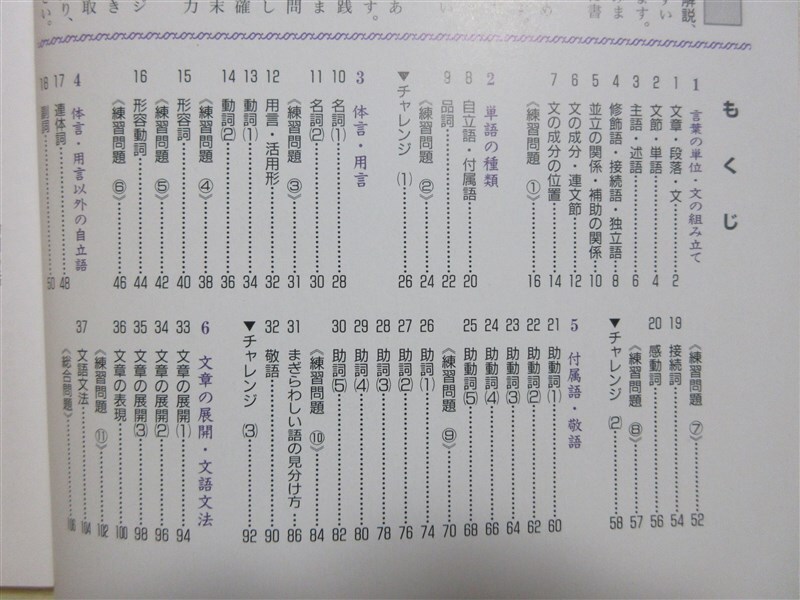 もくじ
1 言葉の単位・文の組み立て
1 文章・段落・文 2
2 文節・単語 4
3 主語・述語 6
4 修飾語・接続語・独立語 8
5 並立の関係・補助の関係 10
6 文の成分・連文節 12
7 文の成分の位置 14
《練習問題 ①》 16
2 単語の種類
8 自立語・付属語 20
9 品詞 22
《練習問題 ②》 24
▼チャレンジ (1) 26
3 体言・用言
10 名詞(1) 28
11 名詞(2) 30
《練習問題 ③》 31
12 用言・活用形 32
13 動詞(1) 34
14 動詞(2) 36
《練習問題 ④》 38
15 形容詞 40
《練習問題 ⑤》 42
16 形容動詞 44
《練習問題 ⑥》 46
4 体言・用言以外の自立語
17 連体詞 48
18 副詞 50
《練習問題 ⑦》 52
19 接続詞 54
20 感動詞 56
《練習問題 ⑧》 57
▼チャレンジ (2) 58
5 付属語・敬語
21 助動詞(1) 60
22 助動詞(2) 62
23 助動詞(3) 64
24 助動詞(4) 66
25 助動詞(5) 68
《練習問題 ⑨》 70
26 助詞(1) 74
27 助詞(2) 76
28 助詞(3) 78
29 助詞(4) 80
30 助詞(5) 82
《練習問題 ⑩》 84
31 まぎらわしい語の見分け方 86
32 敬語 90
▼チャレンジ (3) 92
6 文章の展開・文語文法
33 文章の展開(1) 94
34 文章の展開(2) 96
35 文章の展開(3) 98
36 文章の表現 100
《練習問題 ⑪》 102
37 文語文法 104
《総合問題》 106